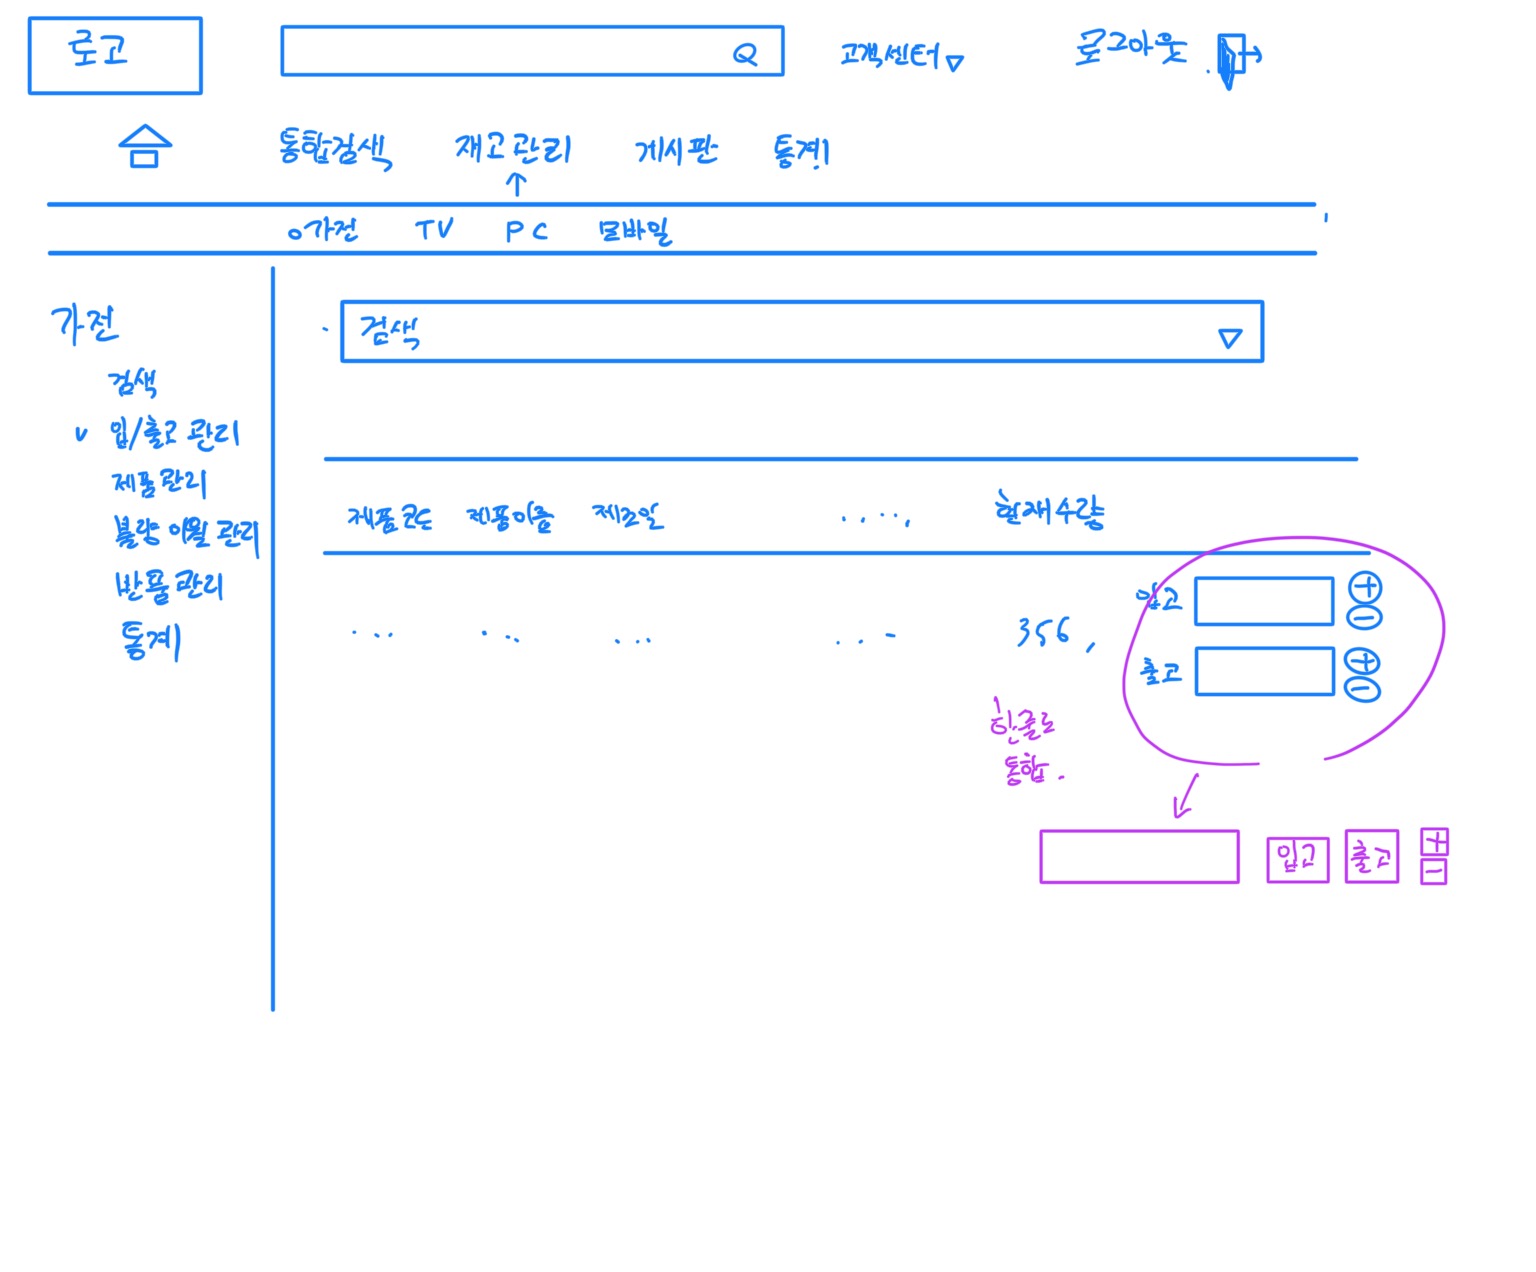 로고
고객센터
로그아웃
통합검색 재고관리 게시판 통계
가전 TV PC 모바일
가전
검색
입/출고 관리
제품관리
불량 이월 관리
반품관리
통계
검색
제품코드 제품이름 제조일 ..... 현재수량
... ... ... ... 356
입고 +
-
출고 +
-
한줄로
통합.
입고 출고 +
-